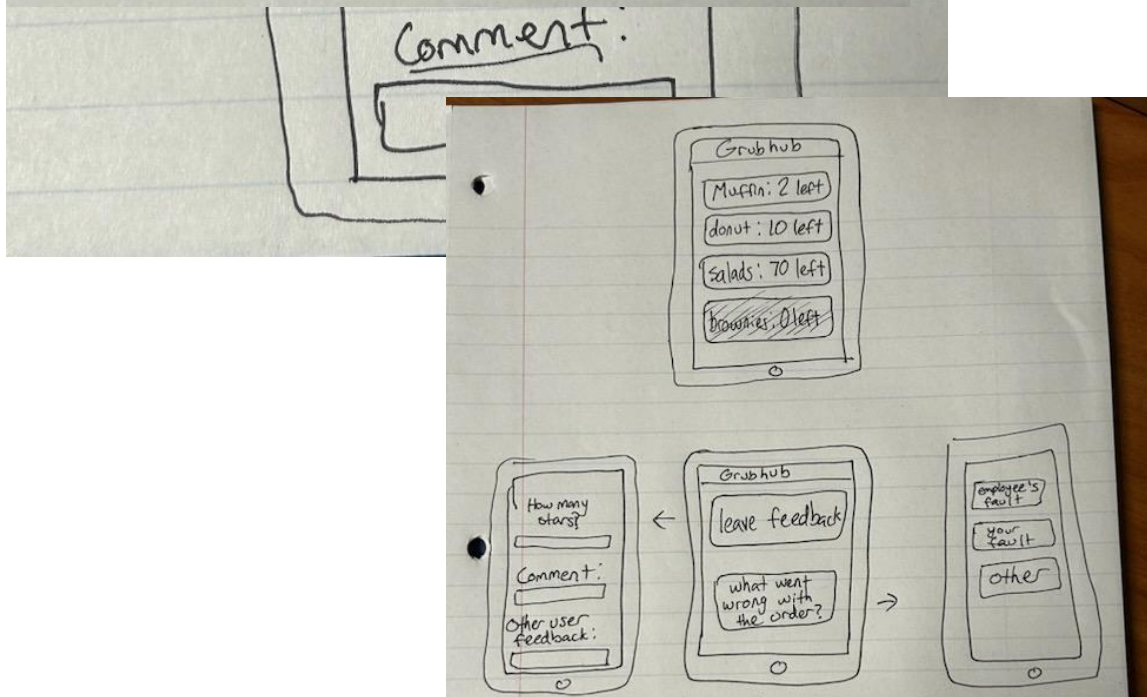 Comment:
Grubhub
Muffin: 2 left
donut: 10 left
salads: 70 left
brownies: 0 left
How many
stars?
Comment:
Other user
feedback:
Grubhub
leave feedback
what went
wrong with
the order?
employee's
fault
your
fault
other